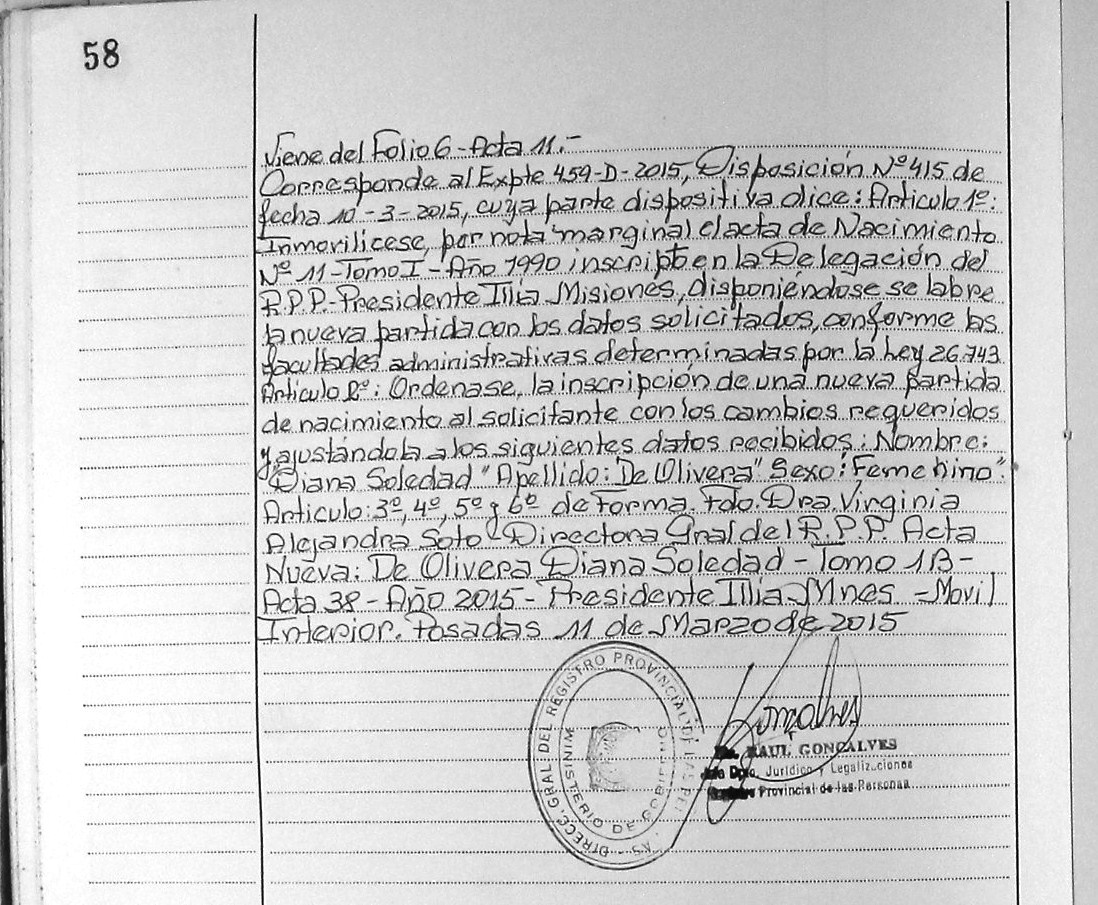 58
Viene del Folio 6 - Acta 11.-
Corresponde al Expte 459-D-2015, Disposición Nº 415 de
fecha 10-3-2015, cuya parte dispositiva dice: Articulo 1º:
Inmovilicese, por nota marginal el acta de Nacimiento
Nº 11 - Tomo I - Año 1990 inscripto en la Delegación del
R.P.P.- Presidente Illia Misiones, disponiéndose se labre
la nueva partida con los datos solicitados, conforme las
facultades administrativas determinadas por la Ley 26.743
Articulo 2º: Ordenase, la inscripción de una nueva partida
de nacimiento al solicitante con los cambios requeridos
y ajustándola a los siguientes datos recibidos: Nombre:
Diana Soledad" Apellido: "De Olivera" Sexo: Femenino".
Articulo: 3º, 4º, 5º y 6º de Forma. Fdo. Dra. Virginia
Alejandra Soto - Directora Gral del R.P.P. Acta
Nueva: De Olivera Diana Soledad - Tomo 1B -
Acta 38 - Año 2015 - Presidente Illia Mnes - Movil
Interior. Posadas 11 de Marzo de 2015
DIRECC. GRAL. DEL REGISTRO PROVINCIAL DE LAS
MINISTERIO DE GOBIERNO
Gonçalves
RAUL GONCALVES
Jefe Dpto. Jurídico y Legalizaciones
Provincial de las Personas